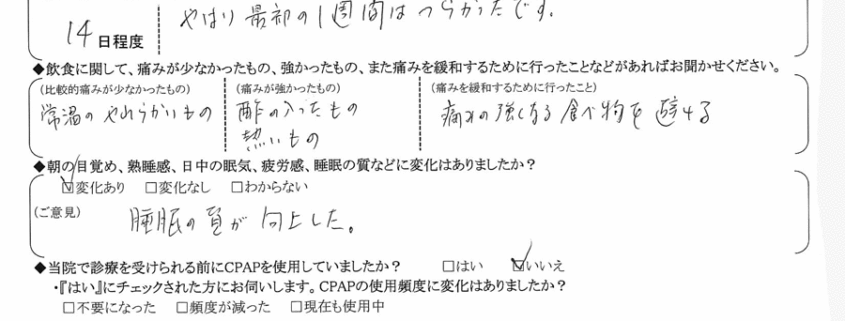 やはり最初の1週間はつらかったです。
14日程度
◆飲食に関して、痛みが少なかったもの、強かったもの、また痛みを緩和するために行ったことなどがあればお聞かせください。
(比較的痛みが少なかったもの) (痛みが強かったもの) (痛みを緩和するために行ったこと)
常温のやわらかいもの 酢の入ったもの 痛みの強くなる食べ物を避ける
熱いもの
◆朝の目覚め、熟睡感、日中の眠気、疲労感、睡眠の質などに変化はありましたか?
☑変化あり □変化なし □わからない
(ご意見) 睡眠の質が向上した。
◆当院で診療を受けられる前にCPAPを使用していましたか? □はい ☑いいえ
・『はい』にチェックされた方にお伺いします。CPAPの使用頻度に変化はありましたか?
□不要になった □頻度が減った □現在も使用中